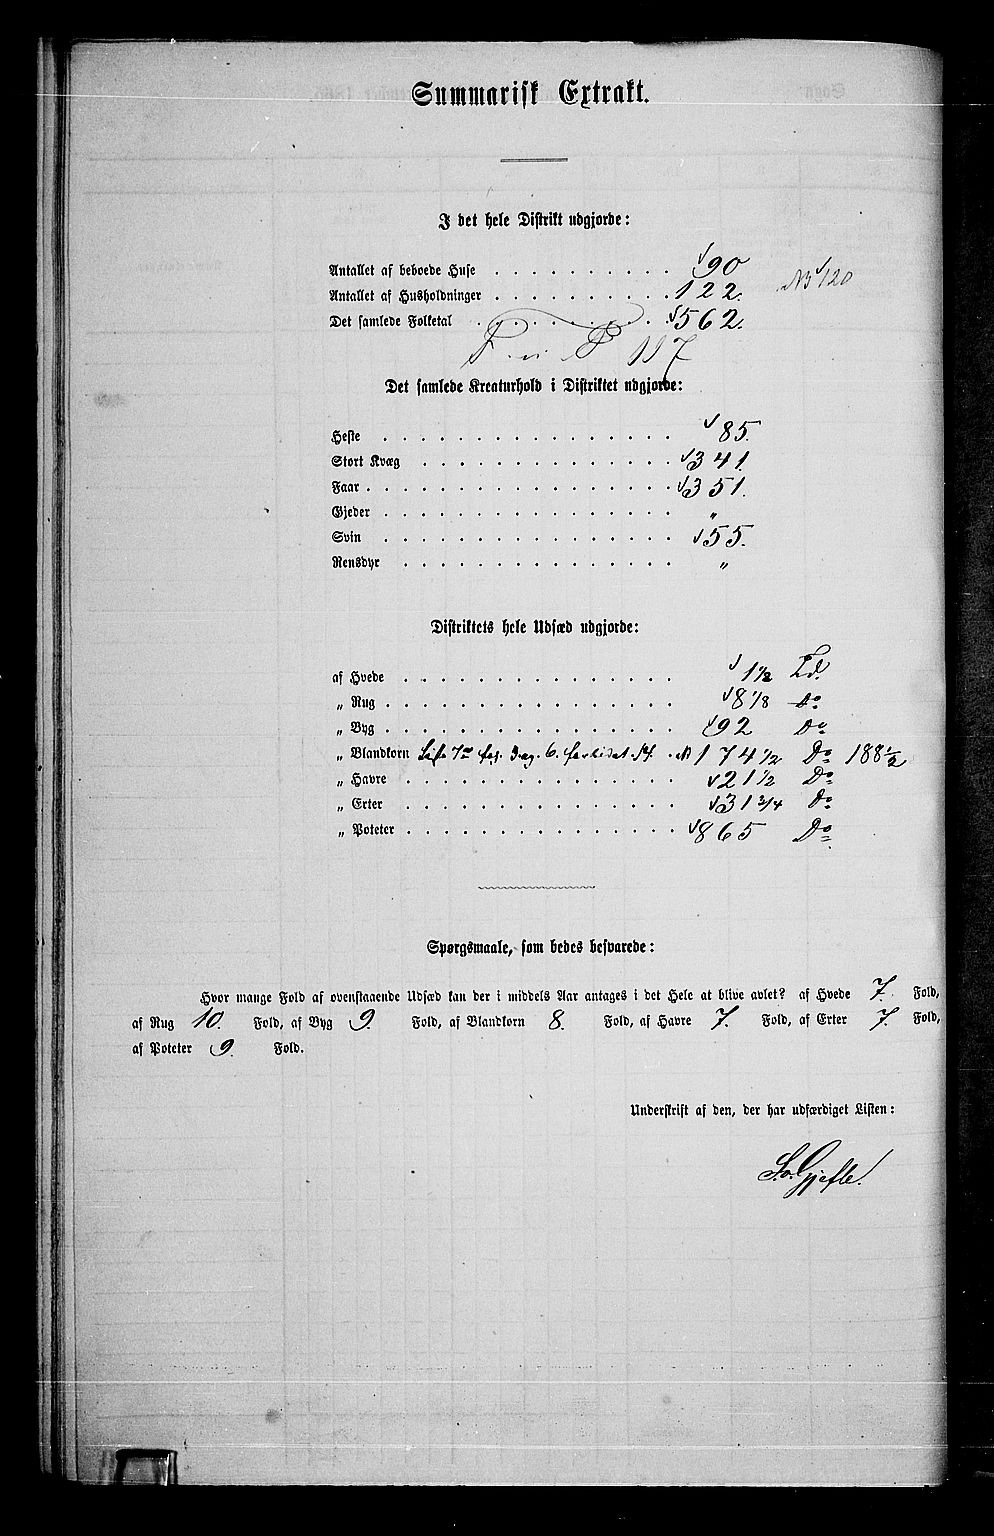 Summarisk Extrakt.
I det hele Distrikt udgjorde:
Antallet af beboede Huse . . . . . . . . . . 90
Antallet af Husholdninger . . . . . . . . . . 122. NB 120
Det samlede Folketal . . . . . . . . . . 562.
F. n. P 117
Det samlede Kreaturhold i Distriktet udgjorde:
Heste . . . . . . . . . . 85.
Stort Kvæg . . . . . . . . . . 341.
Faar . . . . . . . . . . 351.
Gjeder . . . . . . . . . . "
Svin . . . . . . . . . . 55.
Rensdyr . . . . . . . . . . "
Distriktets hele Udsæd udgjorde:
af Hvede . . . . . . . . . . 1 1/2 Td.
„ Rug . . . . . . . . . . 8 1/8 Do
„ Byg . . . . . . . . . . 92 Do
„ Blandkorn 174 1/2 Do 188 1/2
„ Havre . . . . . . . . . . 21 1/2 Do
„ Erter . . . . . . . . . . 31 3/4 Do
„ Poteter . . . . . . . . . . 865 Do
Spørgsmaale, som bedes besvarede:
Hvor mange Fold af ovenstaaende Udsæd kan der i middels Aar antages i det Hele at blive avlet? af Hvede 7. Fold,
af Rug 10. Fold, af Byg 9. Fold, af Blandkorn 8. Fold, af Havre 7. Fold, af Erter 7. Fold,
af Poteter 9. Fold.
Underskrift af den, der har udfærdiget Listen:
Gjefle.